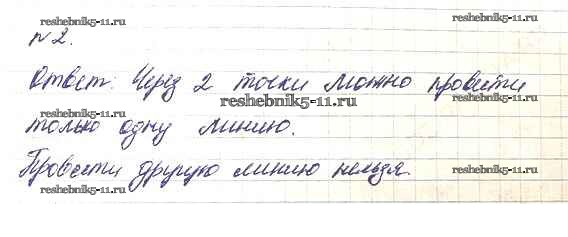 reshebnik5-11.ru
№2.
Ответ: Через 2 точки можно провести
reshebnik5-11.ru
только одну линию.
Провести другую линию нельзя.
reshebnik5-11.ru reshebnik5-11.ru